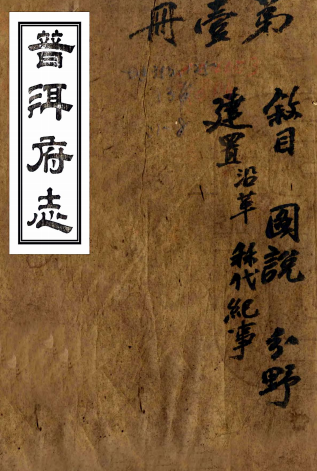 普洱府志
第壹冊
敘目 圖說 分野
建置沿革 秝代紀事